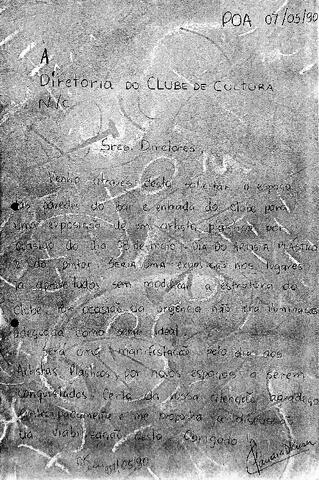 POA 07/05/90
A
Diretoria DO CLUBE DE CULTURA
N/C
Sres. Diretores,
Venho através desta solicitar o espaço
das paredes do bar e entrada do Clube para
uma exposição de um artista plástico por
ocasião do dia 08 de maio - DIA DO ARTISTA PLÁSTICO
e do pintor. Seria uma exposição nos lugares
já sem modificar a estrutura do
Clube, por ocasião da urgência não ter iluminação
adequada como seria ideal.
Será uma manifestação pelo dia dos
Artistas Plásticos, por novos espaços a serem
conquistados. Certa da vossa atenção agradeço
antecipadamente e me
na viabilização desta. Obrigado
/05/90